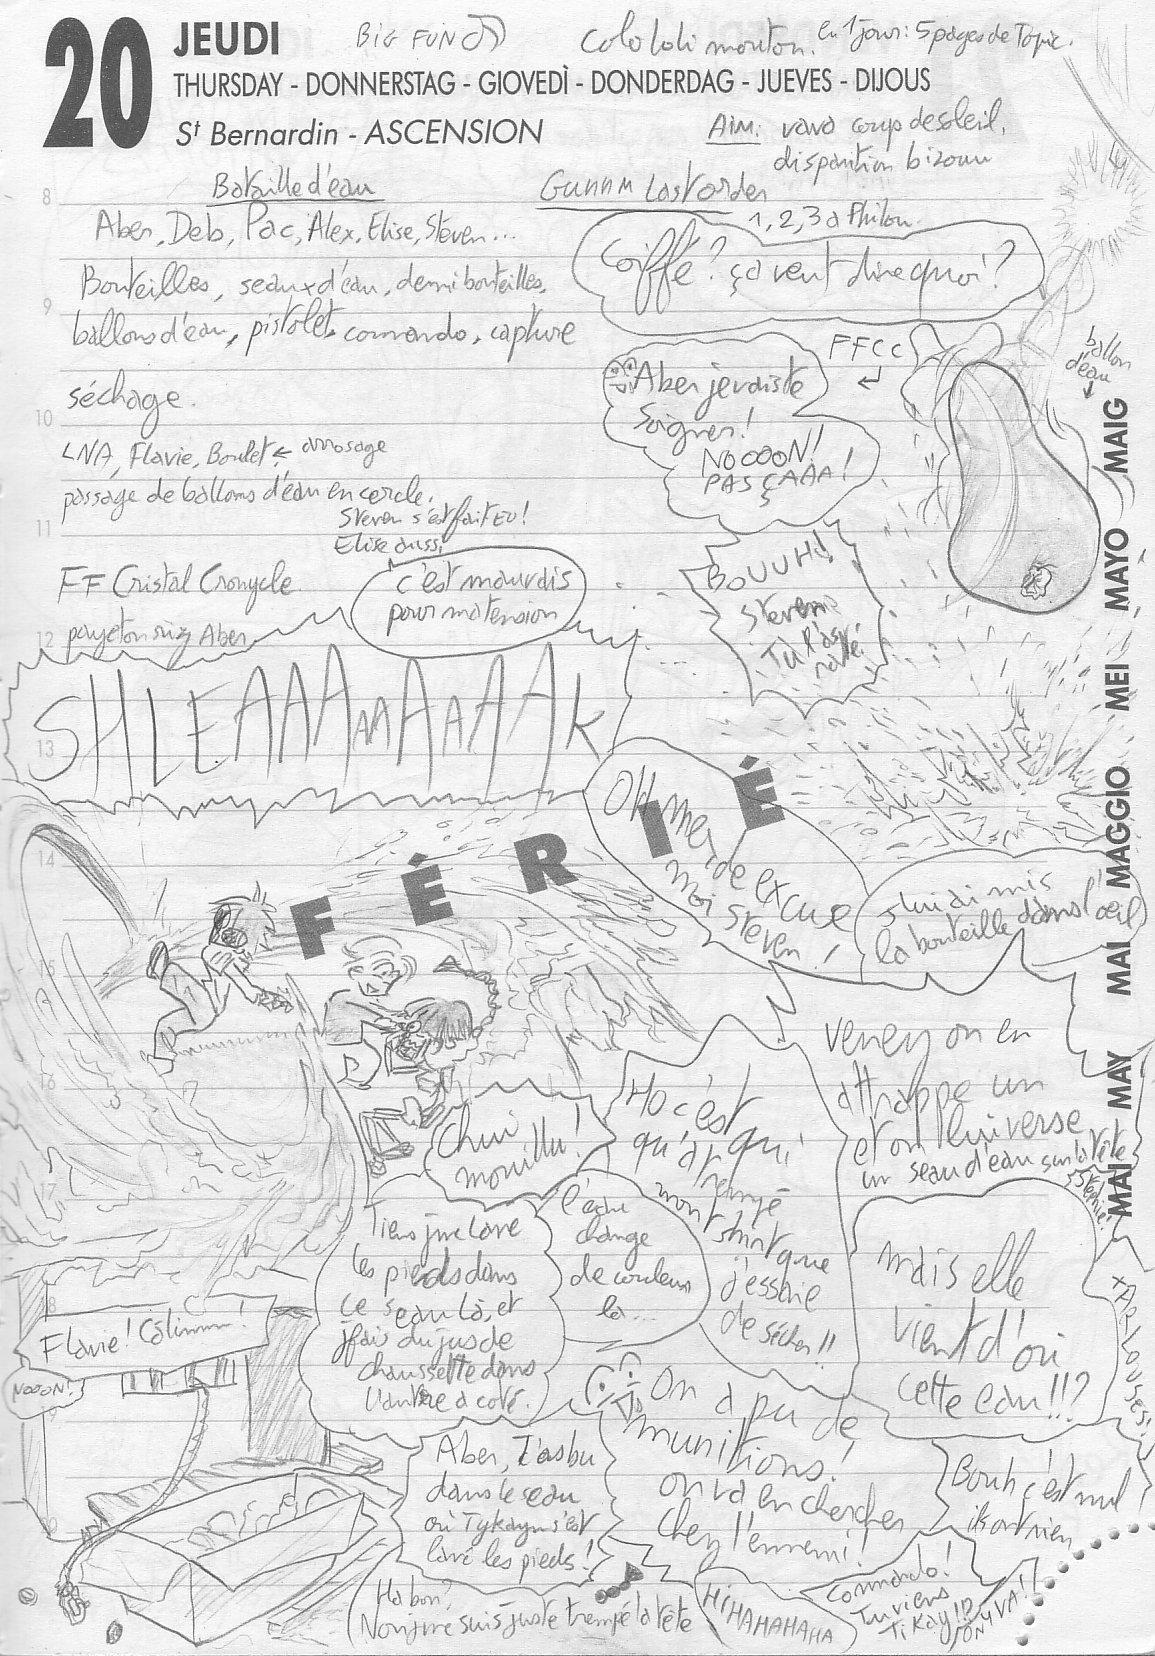 20 JEUDI
BIG FUN
Colo loli mouton. en 1 jour: 5 pages de Topic.
THURSDAY - DONNERSTAG - GIOVEDÌ - DONDERDAG - JUEVES - DIJOUS
St Bernardin - ASCENSION
AIM: vovo coup de soleil,
disparition bizouu
8
Bataille d'eau
GUNNM Last order
1, 2, 3 a Philou.
Aber, Deb, Pac, Alex, Elise, Steven...
Coiffé? ça veut dire quoi!?
Bouteilles, seaux d'eau, demi bouteilles,
9
ballons d'eau, pistolet, comando, capture
FFCC
ballon
d'eau
séchage.
Aber je vdiste
Soigner!
NOOOON!
PAS ÇAAA!
10
LNA, Flavie, Boulet ← arrosage
passage de ballons d'eau en cercle.
Steven s'est fait EU!
11
Elise aussi
FF Cristal Cronycle
c'est mauvais
pour ma tension
BOUUH!
Steven
Tu l'as
raté!
12
payetonring Aber
SHLEAAAAAAAAAK
13
FÉRIÉ
OH mer
de excuse
moi Steven!
j'lui ai mis
la bouteille dans l'oeil
14
15
16
venez on en
attrappe un
et on lui verse
un seau d'eau sur la tête
Stephie!
Chui
mouillu!
Ho c'est
qui
qu'a rempé
mon t shirt que
j'essaie
de sécher!!
17
Tiens j'me lave
les pieds dans
ce seau là, et
j'fais du jus de
chaussette dans
l'autre a coté.
l'eau
change
de couleur
là...
mais elle
vient d'où
cette eau!!?
+ PARLOUSES!
18
Flavie! Câlinnn!
NOOON!
On a pu de
munitions!
on va en chercher
chez l'ennemi!
Aber, T'as bu
dans le seau
où Tykayn s'est
lavé les pieds!
Bouh c'est nul!
ils ont rien
Ha bon?
Non j'me suis juste trempé la tête
HiHAHAHAHA
Commando!
Tu viens
Tikay!?
ON Y VA!
MAI MAY MAI MAGGIO MEI MAYO MAIG